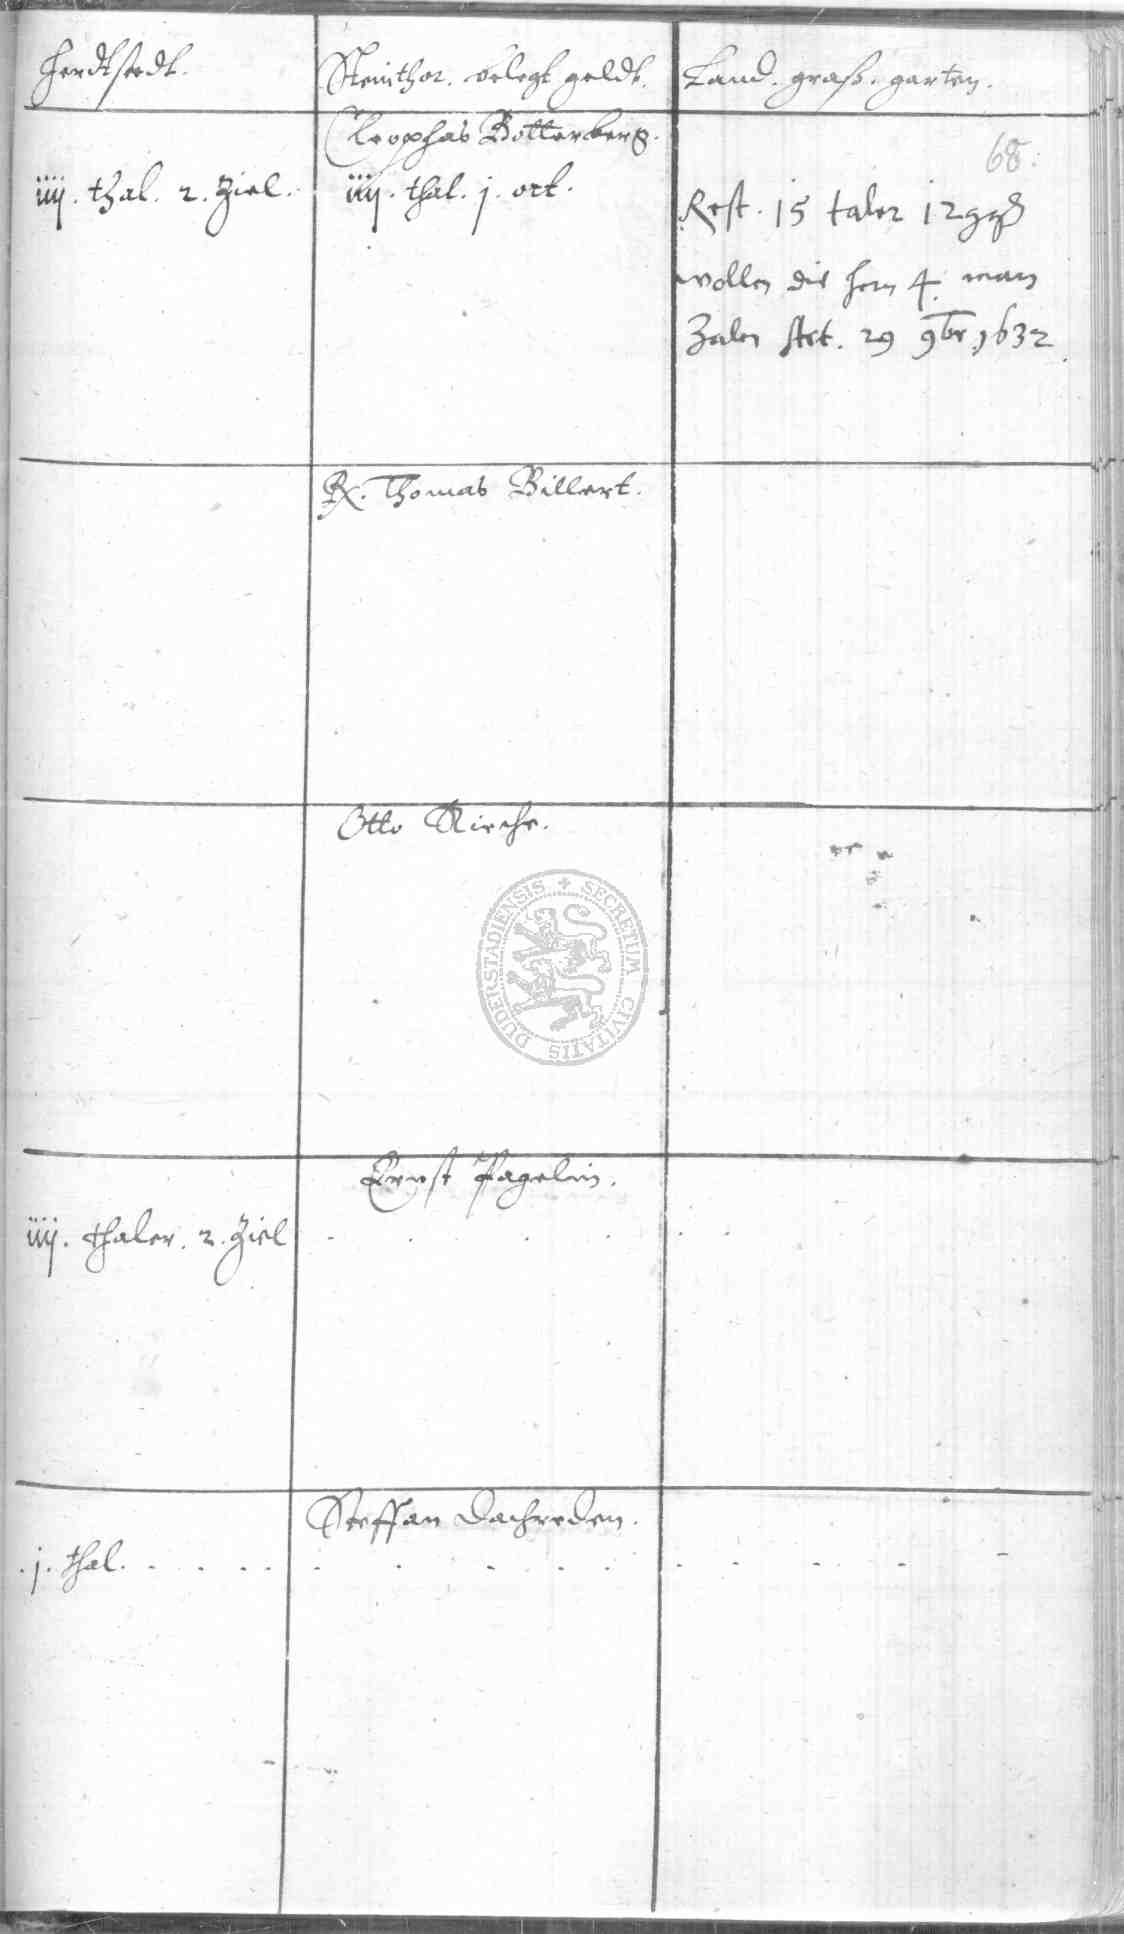 Herdtstedt. Steinthor. belegt geldt. Land. graß. garten.
Cleophas Botterberg.
68.
iiij. thal. 2. Ziel. iiij. thal. j. ort.
Rest. 15 taler 12 ggß
wollen die hern 4 man
Zalen Act. 29 9br 1632
R. Thomas Billert.
Otto Kirche.
DUDERSTADIENSIS + SECRETUM CIVITATIS
Ernst Pagelin.
iiij. thaler. 2. Ziel
Steffan Dachreden.
j. thal.